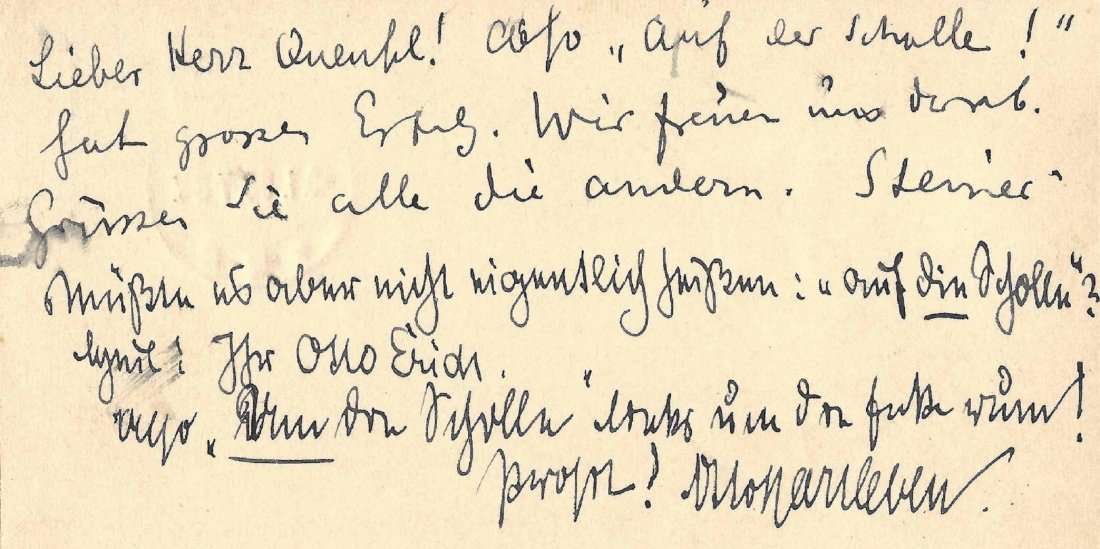 Lieber Herr Quensel! Also „Auf der Scholle!“
hat grossen Erfolg. Wir freuen uns darob.
Grüssen Sie alle die andern. Steiner
Müßte es aber nicht eigentlich heißen: „auf die Scholle“?
Ihr Otto Erich.
also „Um die Scholle“ links um die Ecke rum!
Prost! Otto Hartleben.